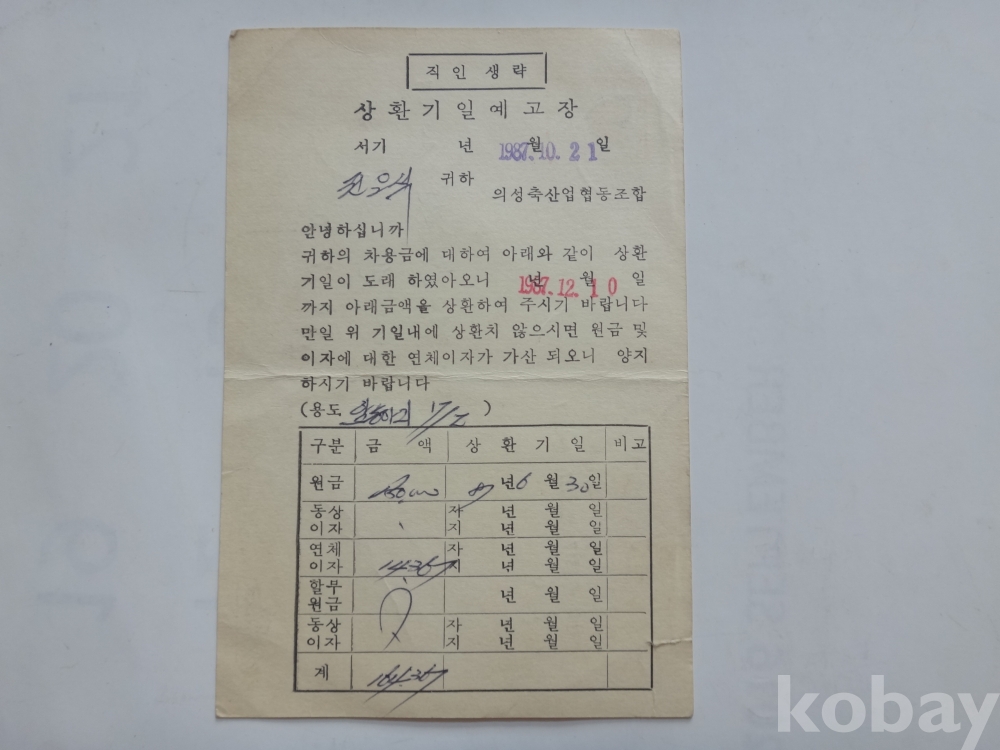 직인생략
상환기일예고장
서기 년 월 일
1987.10.21
귀하
의성축산업협동조합
안녕하십니까
귀하의 차용금에 대하여 아래와 같이 상환
기일이 도래 하였아오니 년 월 일
1987.12.10
까지 아래금액을 상환하여 주시기 바랍니다
만일 위 기일내에 상환치 않으시면 원금 및
이자에 대한 연체이자가 가산 되오니 양지
하시기 바랍니다
(용도 )
구분 금 액 상 환 기 일 비고
원금 87 년 6 월 30 일
동상 자 년 월 일
이자 지 년 월 일
연체 자 년 월 일
이자 지 년 월 일
할부
원금 년 월 일
동상 자 년 월 일
이자 지 년 월 일
계
kobay